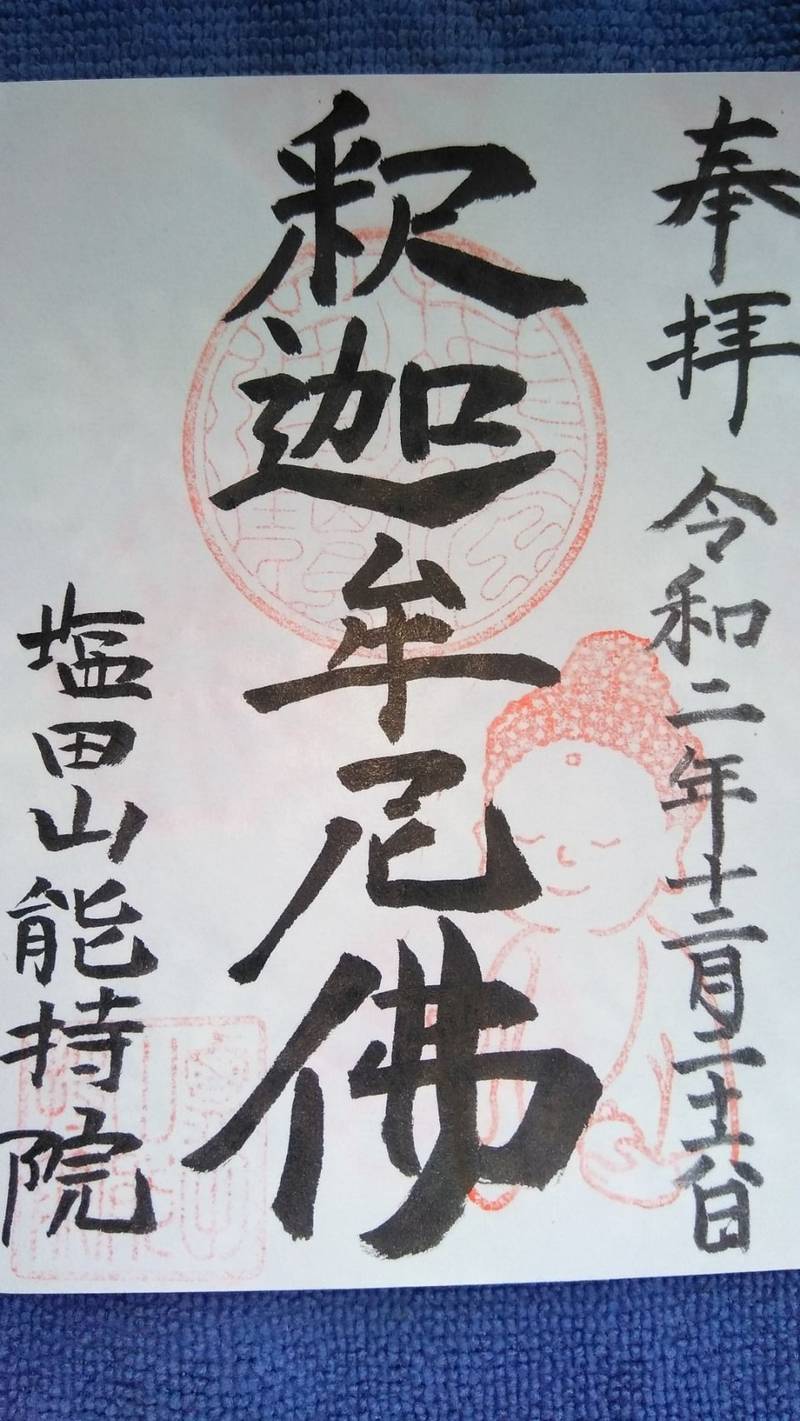 奉拝 令和二年十二月二十六日
釈迦牟尼佛
塩田山能持院